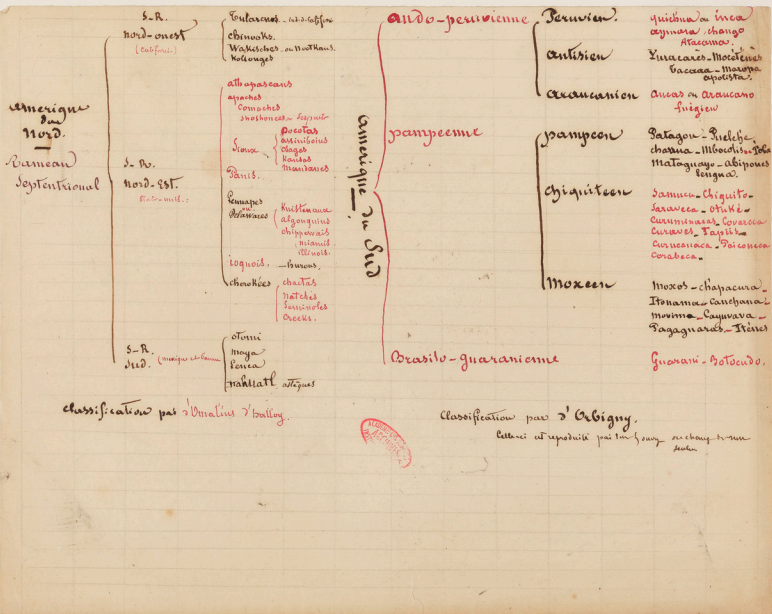 amérique
du
Nord.
Rameau
Septentrional
S-R.
nord-ouest
(Californie)
Tularenos
chinooks.
Wakisches. ou Nootkans.
Kolouges
S-R.
Nord-Est.
Etats-unis.
athapascans
apaches
Comaches
shoshonees
Sioux
Dacotas
assiniboins
Osages
Kansas
mandanes
Panis.
Lennapes
ou
Delawares
Knistenaux
algonquins
chippevais
miamis
illinois.
iroquois. - hurons.
cherokées
chactas
natchés
Seminoles
Creeks.
S-R.
Sud.
otomi
maya
Lenca
nahuatl aztèques
Classification par d'Omalius d'halloy.
amerique du Sud
ando-peruvienne
Peruvien.
quichua ou inca
aymara, chango
Atacama.
antisien
Yuracarès - Mocéténès
Tacana - Maropa
apolista.
araucanien
Aucas ou Araucano
fuégien
pampéenne
pampéen
Patagon - Puelche
charua - Mbocobis - Toba
Mataguayo - abipones
Lengua.
chiquiteen
Samucu - Chiquito
Saraveca - Otuké
Curuminaca - Covareca
Curaves - Tapiis
Curucaneca - Paiconeca
Corabeca.
moxeen
Moxos - chapacura
Itonama - Canichana
movima - Cayuvava
Pacaguaras - Iténès
Brasilo-guaranienne
Guarani - Botocudo.
Classification par d'Orbigny.
Celle-ci est reproduite par